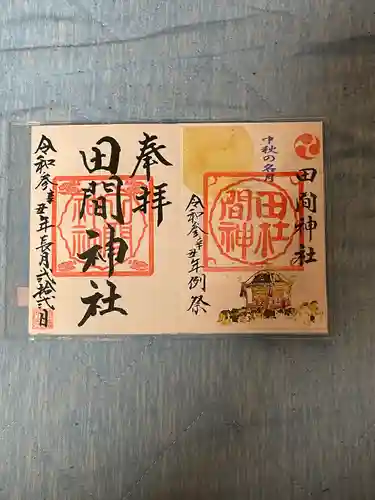 中秋の名月
田間神社
田間神社
令和参辛丑年例祭
奉拝
田間神社
田間神社
令和参辛丑年長月弐拾弐日